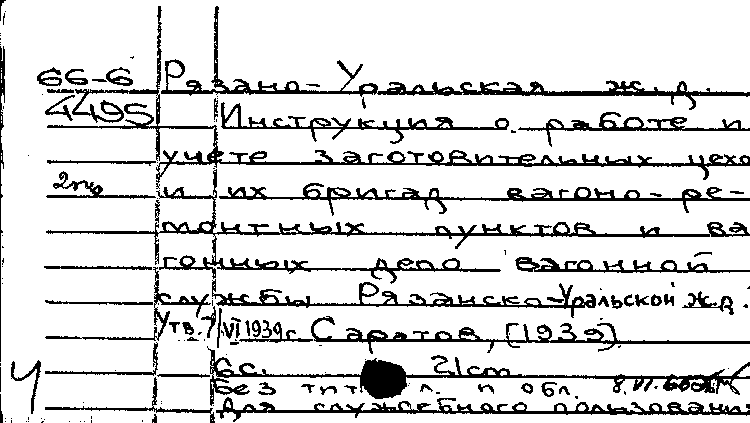 66-6 Рязано-Уральская ж.д.
4495 Инструкция о работе и
учете заготовительных цехо
и их бригад вагоно-ре-
монтных пунктов и ва
гонных депо вагонной
службы Рязанско-Уральской ж.д.
Утв. 7/VI 1939 г. Саратов, [1939]
6с. 21cm.
Без тит. л. и обл.
Для служебного пользовани